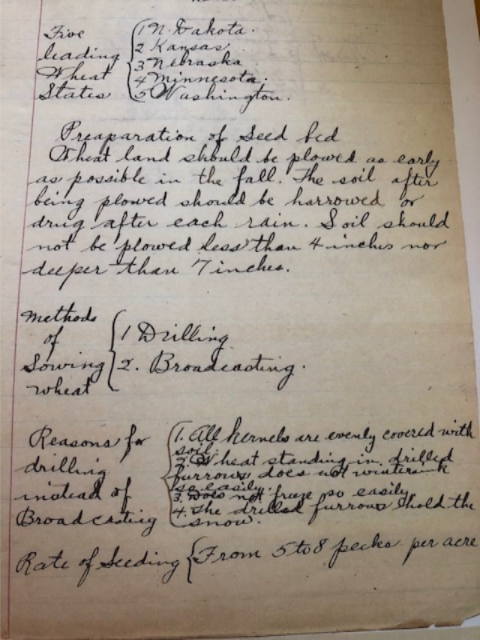 Five
leading
Wheat
States
1 N. Dakota.
2 Kansas.
3 Nebraska
4 Minnesota.
5 Washington.
Preaparation of Seed bed
Wheat land should be plowed as early
as possible in the fall. The soil after
being plowed should be harrowed or
drug after each rain. Soil should
not be plowed less than 4 inches nor
deeper than 7 inches.
Methods
of
Sowing
wheat
1 Drilling
2. Broadcasting.
Reasons for
drilling
instead of
Broadcasting
1. All kernels are evenly covered with
soil.
2. Wheat standing in drilled
furrows does not
so easily.
3. Does not freeze so easily
4. The drilled furrows hold the
snow.
Rate of Seeding
From 5 to 8 pecks per acre